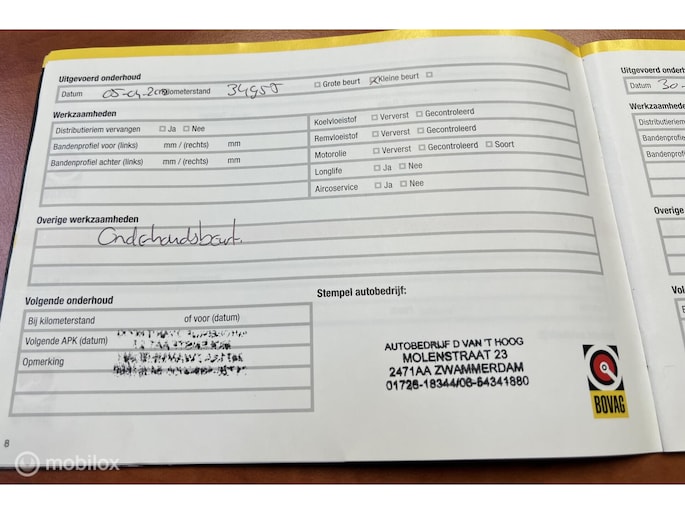 Uitgevoerd onderhoud
Datum 05-04-2019 Kilometerstand 34955 Grote beurt Kleine beurt
Werkzaamheden
Distributieriem vervangen Ja Nee
Bandenprofiel voor (links) mm / (rechts) mm
Bandenprofiel achter (links) mm / (rechts) mm
Koelvloeistof Ververst Gecontroleerd
Remvloeistof Ververst Gecontroleerd
Motorolie Ververst Gecontroleerd Soort
Longlife Ja Nee
Aircoservice Ja Nee
Overige werkzaamheden
Onderhoudsbeurt.
Volgende onderhoud
Bij kilometerstand of voor (datum)
Volgende APK (datum)
Opmerking
Stempel autobedrijf:
AUTOBEDRIJF D VAN 'T HOOG
MOLENSTRAAT 23
2471AA ZWAMMERDAM
01726-18344/06-54341880
BOVAG
8
mobilox
Uitgevoerd onderh
Datum 30-
Werkzaamheden
Distributieriem
Bandenprofiel
Bandenprofie
Overige